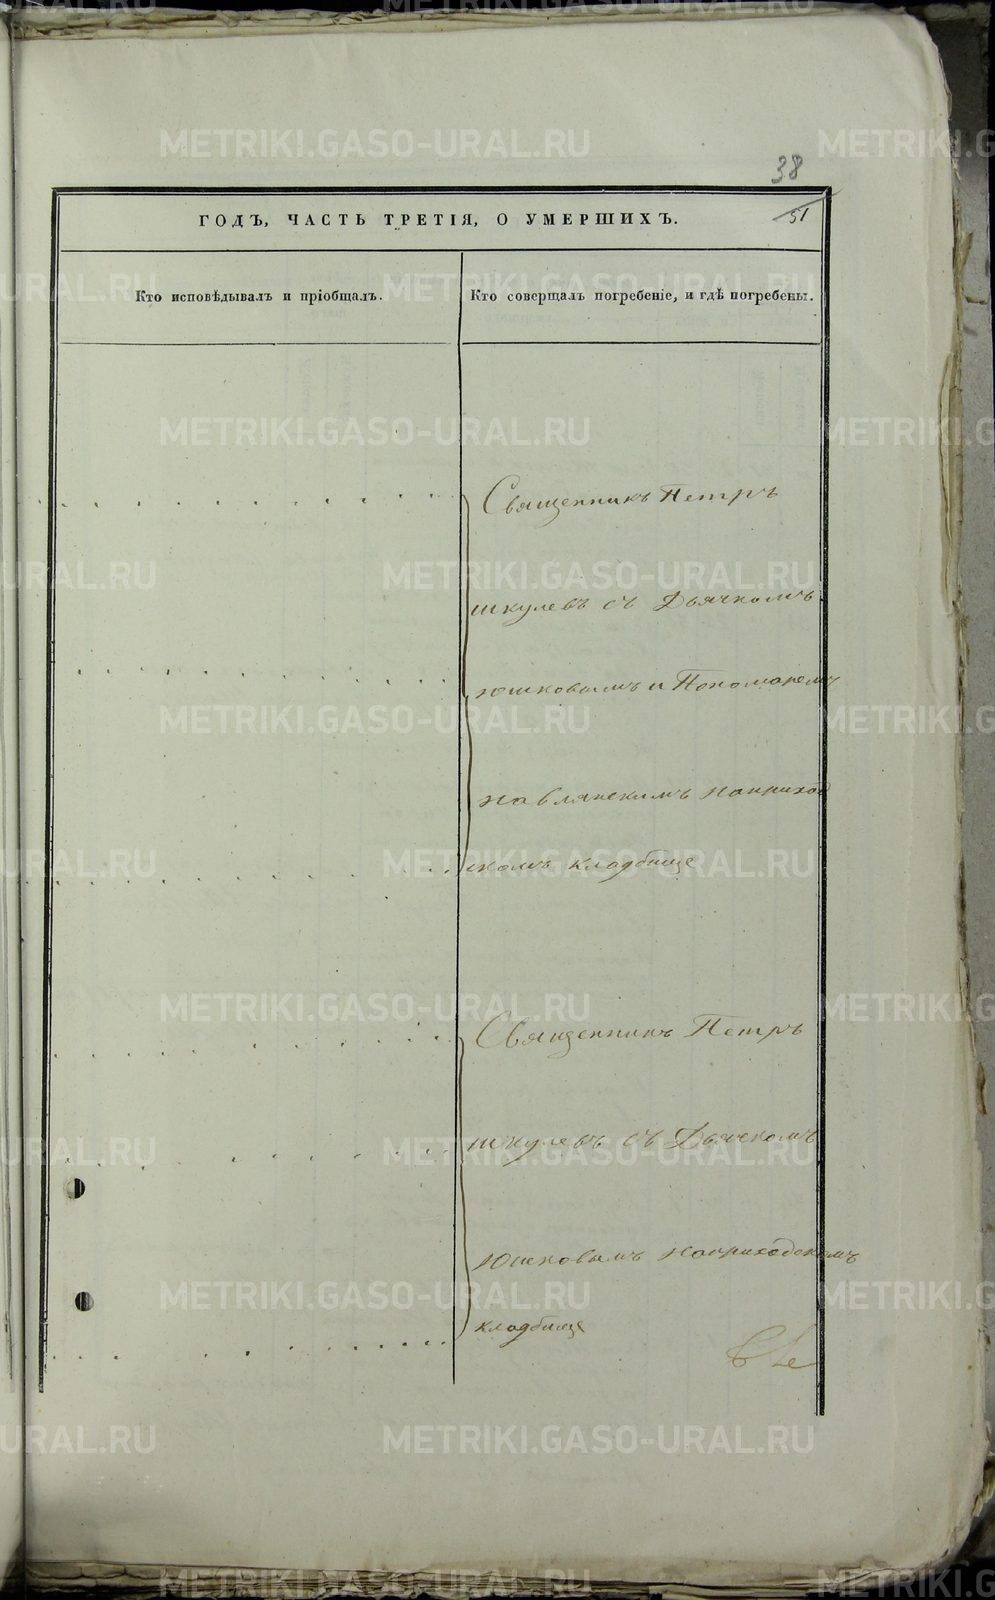 38
ГОДЪ, ЧАСТЬ ТРЕТІЯ, О УМЕРШИХЪ.
51
Кто исповѣдывалъ и пріобщалъ.
Кто совершалъ погребеніе, и гдѣ погребены.
Священникъ Петръ
шкулевъ съ Дьячкомъ
юшковымъ и Пономаремъ
наприход
скомъ кладбище
Священникъ Петръ
шкулевъ съ Дьячкомъ
Юшковымъ наприходскомъ
кладбище
METRIKI.GASO-URAL.RU